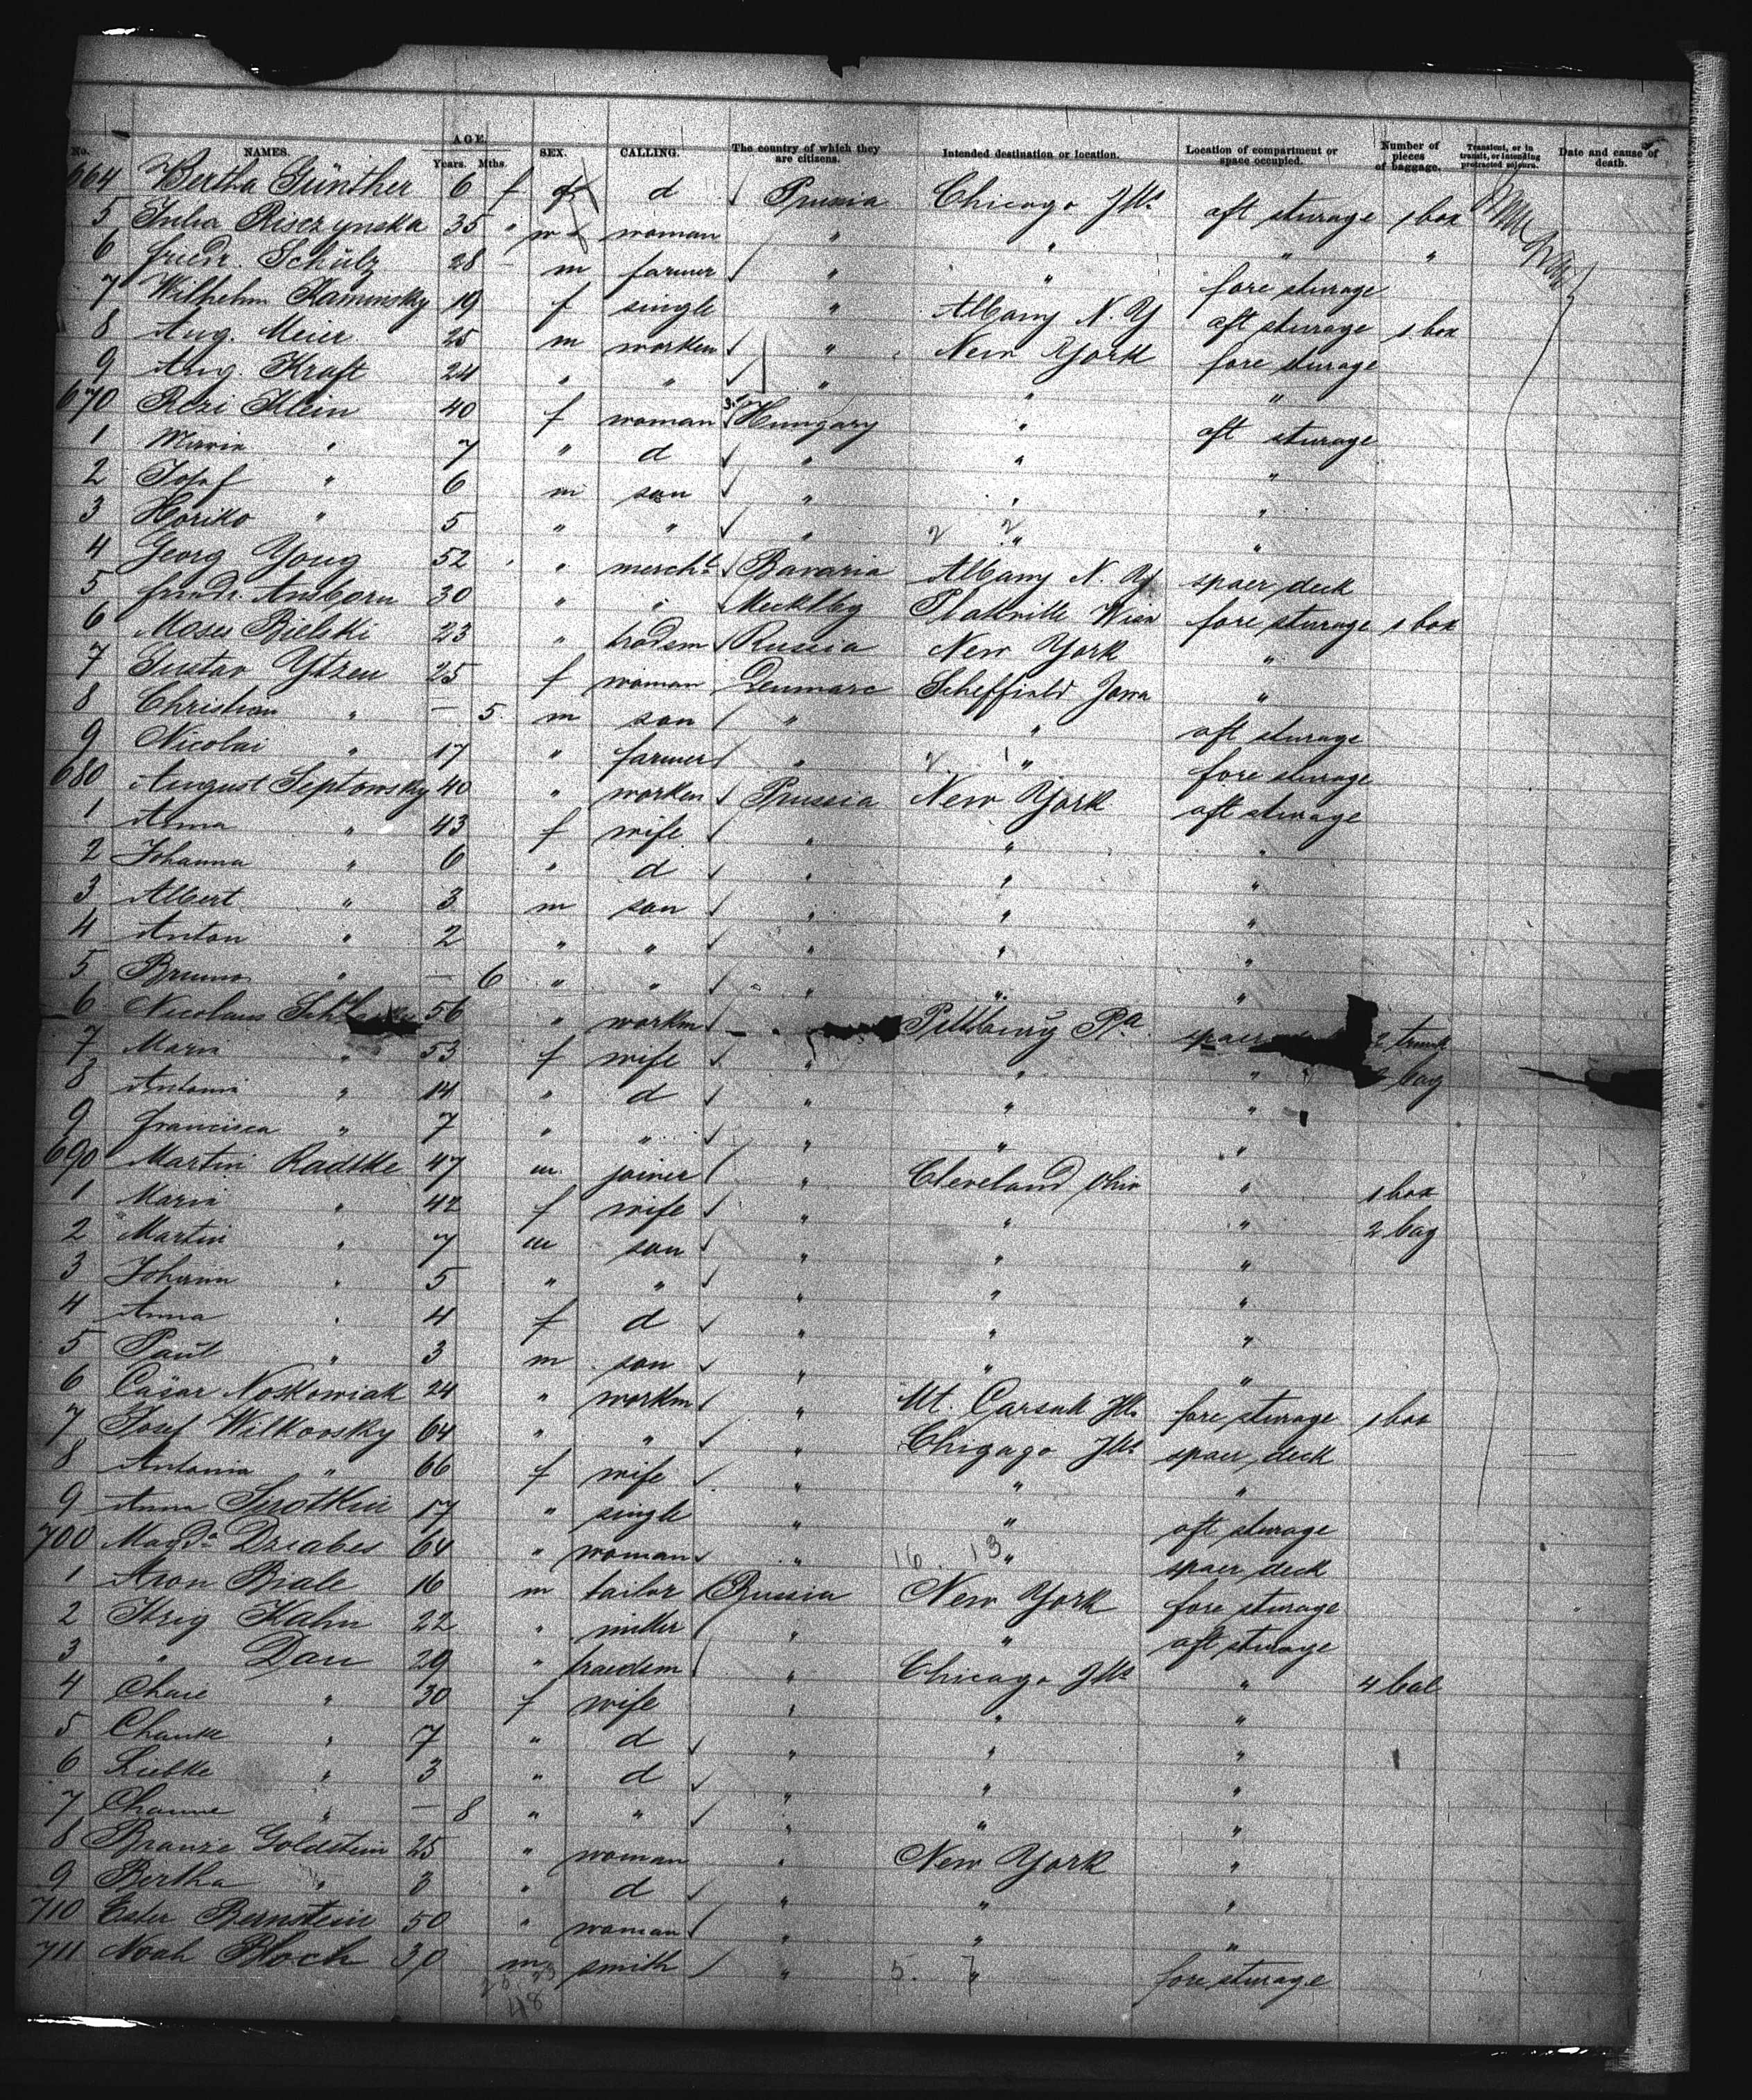 No. NAMES. AGE. Years. Mths. SEX. CALLING. The country of which they are citizens. Intended destination or location. Location of compartment or space occupied. Number of pieces of baggage. Transient, or in transit, or intending protracted sojourn. Date and cause of death.
664 Bertha Günther 6 f d Prussia Chicago Ills aft sturage 1 box
5 Julia Risczynska 35 " woman " " " "
6 friedr. Schülz 28 m farmer " " fore sturage
7 Wilhelm Kaminsky 19 f single " Albany N. Y aft sturage 1 box
8 Aug. Meier 25 m workm " New York fore sturage
9 Aug. Kraft 24 " " " " "
670 Rezi Klein 40 f woman Hungary " aft sturage
1 Maria " 7 " d " " "
2 Josef " 6 m son " " "
3 Horiko " 5 " " " " "
4 Georg Young 52 " mercht Bavaria Albany N. Y spaer deck
5 friedr. Ansborn 30 " " Mecklbg Plattville Wisn fore sturage 1 box
6 Moses Bielski 23 " tradsm Russia New York "
7 Gustav Ytzen 25 f woman Denmarc Scheffield Jowa "
8 Christian " — 5 m son " " aft sturage
9 Nicolai " 17 " farmer " " fore sturage
680 August Septowsky 40 " workm Prussia New York aft sturage
1 Anna " 43 f wife " " "
2 Johanna " 6 " d " " "
3 Albert " 3 m son " " "
4 Anton " 2 " " " " "
5 Bruno " — 6 " " " " "
6 Nicolaus 56 " workm Pittsburg Pa spaer 2 trunk
7 Maria " 53 f wife " " " bag
8 Antonia " 14 " d " " "
9 francisca " 7 " " " " "
690 Martin Radtke 47 m joiner " Cleveland Ohio " 1 box
1 Maria " 42 f wife " " " 2 bag
2 Martin " 7 m son " " "
3 Johann " 5 " " " " "
4 Anna " 4 f d " " "
5 Paul " 3 m son " " "
6 Cäsar Noskowiak 24 " workm " Mt. Ills fore sturage 1 box
7 Josef Wilkovsky 64 " " " Chigago Ills spaer deck
8 Antonia " 66 f wife " " "
9 Anna Smotkin 17 " single " " aft sturage
700 Magda Dziabes 64 " woman " 16 13 " spaer deck
1 Aron Biale 16 m tailor Russia New York fore sturage
2 Hrig Kahn 22 " miller " " aft sturage
3 " Dan 29 " traedsm " Chicago Ills " 4 bal
4 Chaie " 30 f wife " " "
5 Chanke " 7 " d " " "
6 Liebke " 3 " d " " "
7 Channe " — 8 " " " " "
8 Branze Goldstein 25 " woman " New York "
9 Bertha " 3 " d " " "
710 Ester Bernstein 50 " woman " " "
711 Noah Bloch 30 m smith " 5. 7 " fore sturage
48